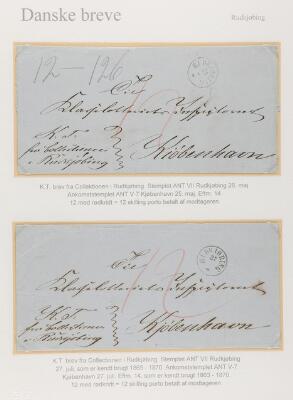 Danske breve
Rudkjøbing
12-126
Til
Klasselotteriets Inspectorat
K.T.
fra Collectionen
i Rudkjøbing
Kjöbenhavn
K.T. brev fra Collektionen i Rudkjøbing. Stemplet ANT VII Rudkjøbing 25. maj
Ankomststemplet ANT V-7 Kjøbenhavn 25. maj, Efm. 14
12 med rødkridt = 12 skilling porto betalt af modtageren.
Til
Klasselotteriets Inspectorat
K.T.
fra Collectionen
i Rudkjøbing
12
Kjöbenhavn
K.T. brev fra Collectionen i Rudkjøbing. Stemplet ANT VII Rudkjøbing
27. juli, som er kendt brugt 1865 - 1870. Ankomststemplet ANT V-7
Kjøbenhavn 27. jul. Efm. 14, som er kendt brugt 1863 - 1870.
12 med rødkridt = 12 skilling porto betalt af modtageren